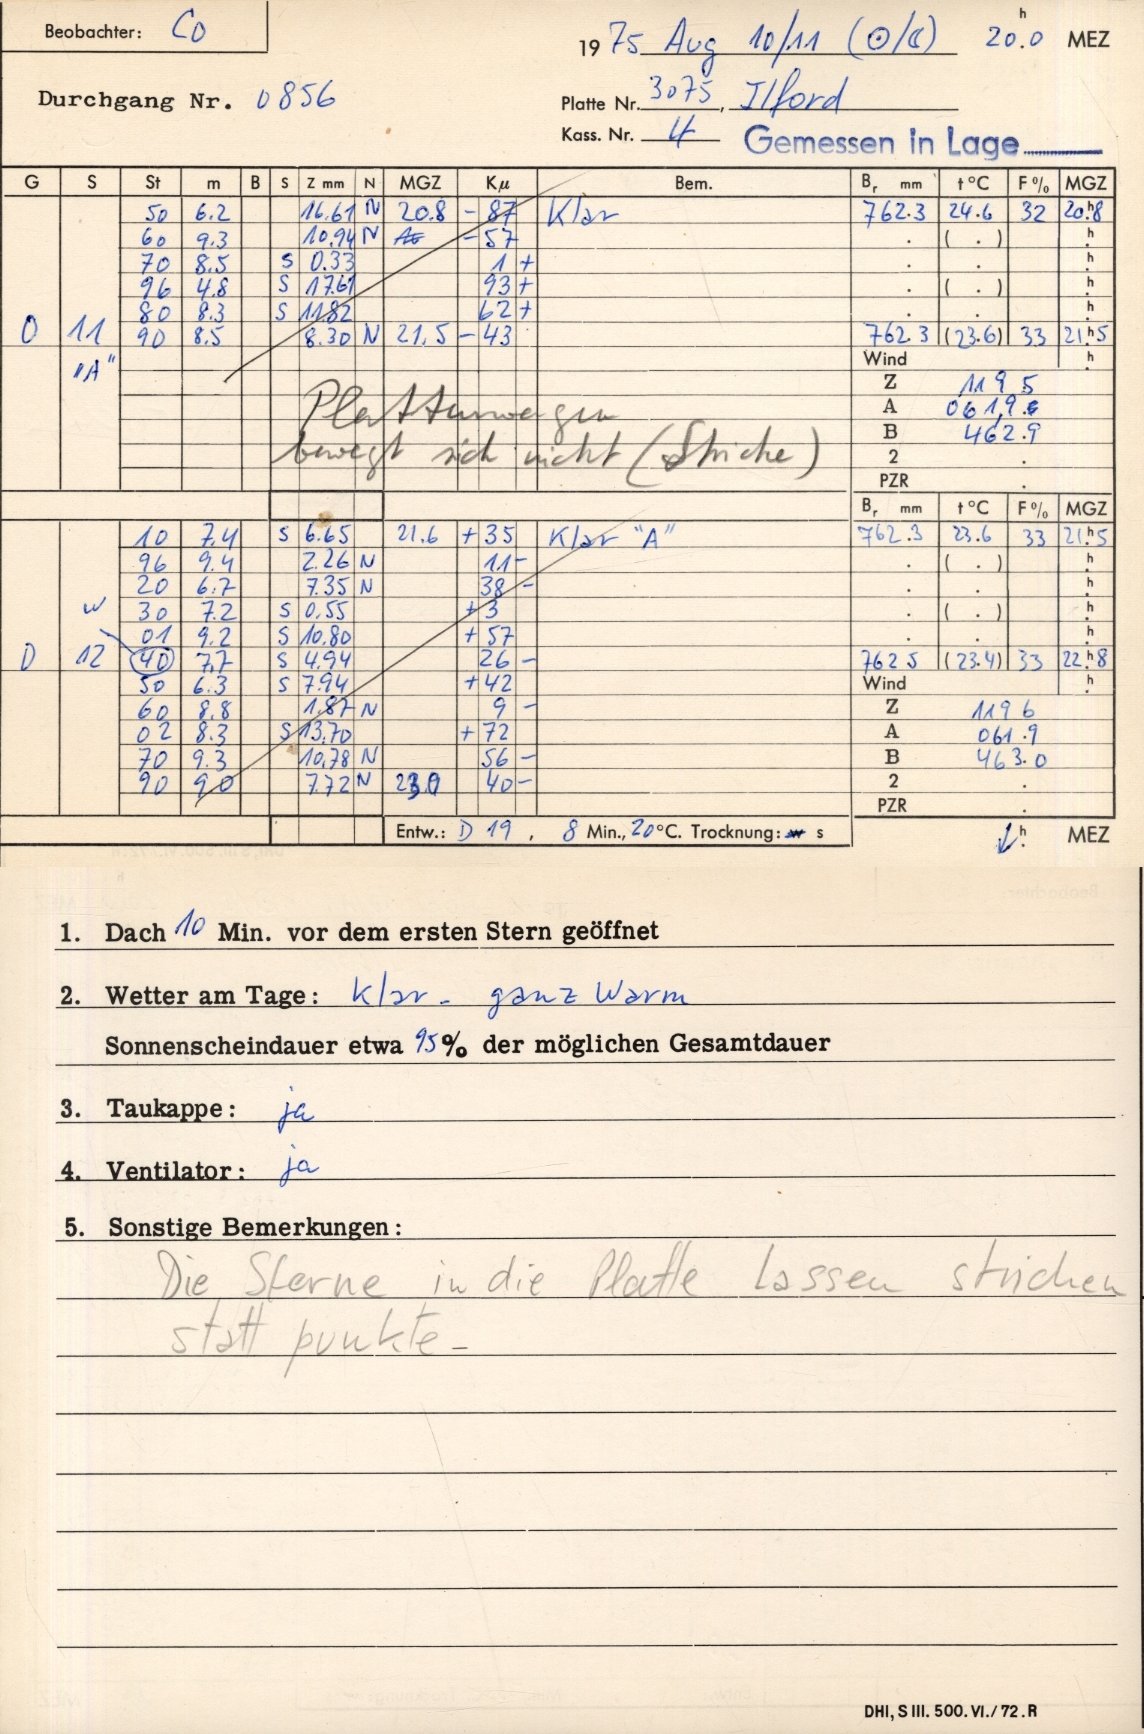 Beobachter: Co
1975 Aug 10/11 (⊙/☾) 20.0 h MEZ
Durchgang Nr. 0856
Platte Nr. 3075, Ilford
Kass. Nr. 4 Gemessen in Lage
G S St m B S Z mm N MGZ Kμ Bem. Br mm t °C F % MGZ
50 6.2 16.61 N 20.8 - 87 Klar 762.3 24.6 32 20.h8
60 9.3 10.94 N - 57 . ( . ) h
70 8.5 S 0.33 1 + . h
96 4.8 S 17.61 93 + . ( . ) h
80 8.3 S 11.82 62 + . . h
0 11 90 8.5 8.30 N 21.5 - 43 762.3 (23.6) 33 21.h5
"A" Wind h
Z 119.5
A 061,9.6
B 462.9
Plattenwagen
bewegt sich nicht (Striche)
2 .
PZR .
Br mm t °C F % MGZ
10 7.4 S 6.65 21.6 + 35 Klar "A" 762.3 23.6 33 21.h5
96 9.4 2.26 N 11 - . ( . ) h
20 6.7 7.35 N 38 - . . h
w 30 7.2 S 0.55 + 3 . ( . ) h
01 9.2 S 10.80 + 57 . . h
D 12 40 7.7 S 4.94 26 - 762 5 (23.4) 33 22.h8
50 6.3 S 7.94 + 42 Wind h
60 8.8 1.87 N 9 - Z 119 6
02 8.3 S 13.70 + 72 A 061.9
70 9.3 10.78 N 56 - B 463.0
90 9.0 7.72 N 23.0 40 - 2 .
PZR .
Entw.: D 19, 8 Min., 20°C. Trocknung: s
h MEZ
1. Dach 10 Min. vor dem ersten Stern geöffnet
2. Wetter am Tage: Klar - ganz Warm
Sonnenscheindauer etwa 95% der möglichen Gesamtdauer
3. Taukappe: ja
4. Ventilator: ja
5. Sonstige Bemerkungen:
Die Sterne in die Platte lassen strichen
statt punkte -
DHI, S III. 500. VI./72. R